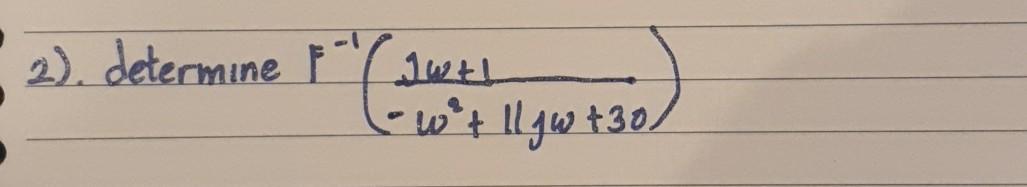 2). determine F⁻¹ ( jw+1 / -w²+11jw+30 )